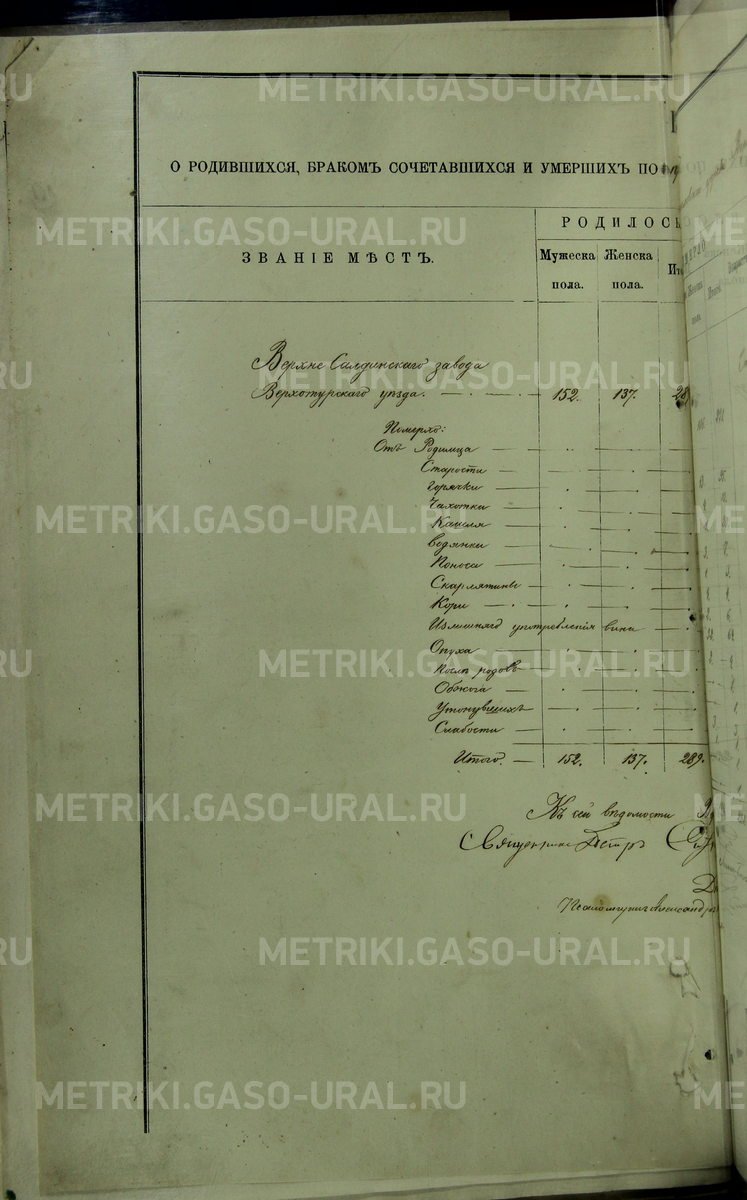 О РОДИВШИХСЯ, БРАКОМЪ СОЧЕТАВШИХСЯ И УМЕРШИХЪ ПО
РОДИЛОСЬ
ЗВАНІЕ МѢСТЪ.
Мужеска пола.
Женска пола.
Верхне Салдинскаго завода
Верхотурскаго уѣзда. 152. 137. 289
Померло:
Отъ Родимца
Старости
Горячки
Чахотки
Кашля
Водянки
Поноса
Скарлятины
Кори
Излишняго употребленія вина
Опуха
Послѣ родовъ
Обжога
Утонувшихъ
Слабости
Итого. 152. 137. 289.
Къ сей вѣдомости
Священникъ Петръ
Псаломщикъ Александръ
METRIKI.GASO-URAL.RU